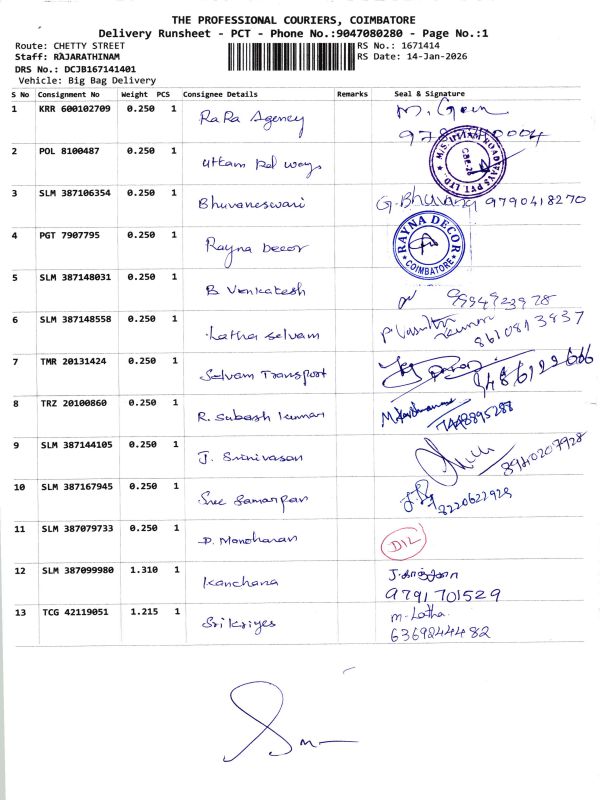 THE PROFESSIONAL COURIERS, COIMBATORE
Delivery Runsheet - PCT - Phone No.:9047080280 - Page No.:1
Route: CHETTY STREET RS No.: 1671414
Staff: RAJARATHINAM RS Date: 14-Jan-2026
DRS No.: DCJB167141401
Vehicle: Big Bag Delivery
S No Consignment No Weight PCS Consignee Details Remarks Seal & Signature
1 KRR 600102709 0.250 1 RaRa Agency
2 POL 8100487 0.250 1 uttam
3 SLM 387106354 0.250 1 Bhuvaneswari G. Bhuvana 9790418270
4 PGT 7907795 0.250 1 Rayna Decor RAYNA DECOR COIMBATORE
5 SLM 387148031 0.250 1 B Venkatesh
6 SLM 387148558 0.250 1 Latha selvam 8610813937
7 TMR 20131424 0.250 1 Selvam Transport
8 TRZ 20100860 0.250 1 R. Subash kumar
9 SLM 387144105 0.250 1 J. Srinivasan 8940207928
10 SLM 387167945 0.250 1 Sree Samarpan 8220622929
11 SLM 387079733 0.250 1 P. Manoharan DIL
12 SLM 387099980 1.310 1 Kanchana 9791701529
13 TCG 42119051 1.215 1 Sri Kriyes m. Latha.
6369244482